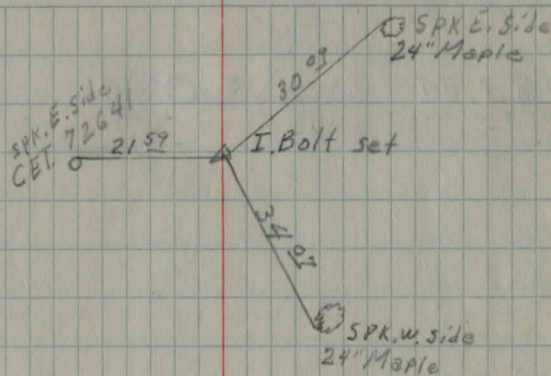 SPK. E. Side
24" Maple
30 09
SPK. E. Side
CEI. 72641
21 59
I. Bolt set
34 07
SPK. W. Side
24" Maple